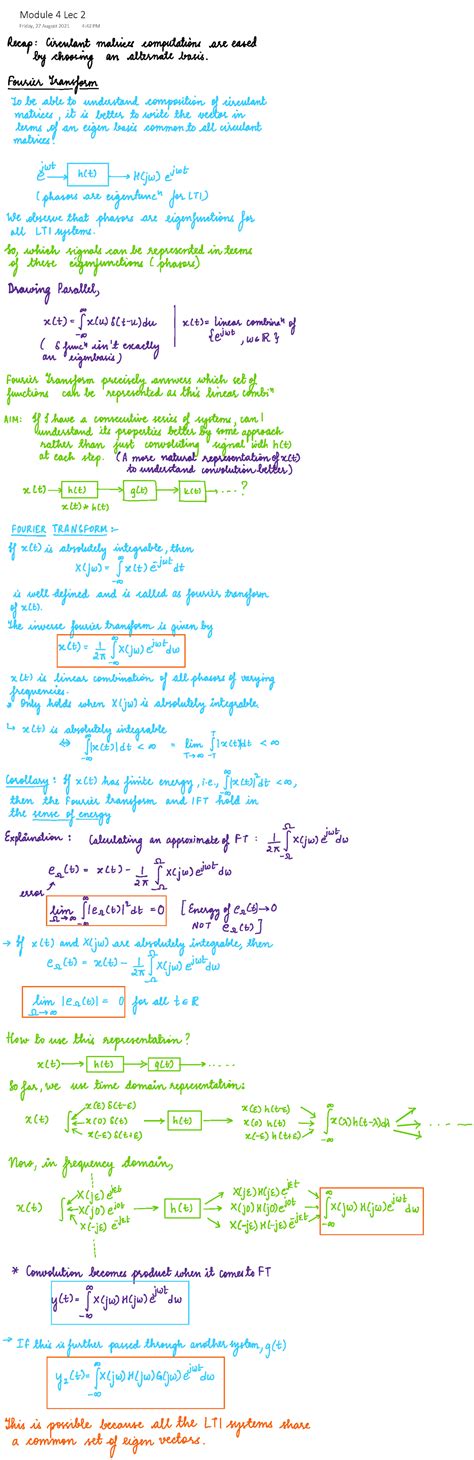 Module 4 Lec 2
Friday, 27 August 2021 4:42 PM
Recap: Circulant matrices computations are eased
by choosing an alternate basis.
Fourier Transform
To be able to understand composition of circulant
matrices, it is better to write the vector in
terms of an eigen basis common to all circulant
matrices.
e^{jωt} → h(t) → H(jω) e^{jωt}
(phasors are eigenfuncⁿ for LTI)
We observe that phasors are eigenfunctions for
all LTI systems.
So, which signals can be represented in terms
of these eigenfunctions (phasors)
Drawing Parallel,
x(t) = ∫_{-∞}^{∞} x(u) δ(t-u) du | x(t) = linear combineⁿ of
{e^{jωt}, ω∈ℝ}
(δ funcⁿ isn't exactly
an eigenbasis)
Fourier Transform precisely answers which set of
functions can be represented as this linear combiⁿ
AIM: If I have a consecutive series of systems, can I
understand its properties better by some approach
rather than just convoluting signal with h(t)
at each step. (A more natural representation of x(t)
to understand convolution better)
x(t) → h(t) → g(t) → k(t) → ....?
x(t) * h(t)
FOURIER TRANSFORM :-
If x(t) is absolutely integrable, then
X(jω) = ∫_{-∞}^{∞} x(t) e^{-jωt} dt
is well defined and is called as fourier transform
of x(t).
The inverse fourier transform is given by
x(t) = 1/2π ∫_{-∞}^{∞} X(jω) e^{jωt} dω
x(t) is linear combination of all phasors of varying
frequencies.
* Only holds when X(jω) is absolutely integrable.
↳ x(t) is absolutely integrable
⇔ ∫_{-∞}^{∞} |x(t)| dt < ∞ = lim_{T→∞} ∫_{-T}^{T} |x(t)| dt < ∞
Corollary: If x(t) has finite energy, i.e., ∫_{-∞}^{∞} |x(t)|² dt < ∞,
then the Fourier transform and IFT hold in
the sense of energy
Explaination: Calculating an approximate of FT: 1/2π ∫_{-Ω}^{Ω} X(jω) e^{jωt} dω
e_Ω(t) = x(t) - 1/2π ∫_{-Ω}^{Ω} X(jω) e^{jωt} dω
error
lim_{Ω→∞} ∫_{-∞}^{∞} |e_Ω(t)|² dt = 0 [Energy of e_Ω(t) → 0
NOT e_Ω(t)]
→ If x(t) and X(jω) are absolutely integrable, then
e_Ω(t) = x(t) - 1/2π ∫_{-Ω}^{Ω} X(jω) e^{jωt} dω
lim_{Ω→∞} |e_Ω(t)| = 0 for all t∈ℝ
How to use this representation?
x(t) → h(t) → g(t) → .....
So far, we use time domain representation:
x(ε) δ(t-ε) x(ε) h(t-ε)
x(t) ∫ x(0) δ(t) → h(t) → x(0) h(t) ∫_{-∞}^{∞} x(λ) h(t-λ) dλ .... ...
x(-ε) δ(t+ε) x(-ε) h(t+ε)
Now, in frequency domain,
X(jε) e^{jεt} X(jε) H(jε) e^{jεt}
x(t) ∫ X(j0) e^{j0t} → h(t) → X(j0) H(j0) e^{j0t} ∫_{-∞}^{∞} X(jω) H(jω) e^{jωt} dω
X(-jε) e^{-jεt} X(-jε) H(-jε) e^{-jεt}
* Convolution becomes product when it comes to FT
y(t) = ∫_{-∞}^{∞} X(jω) H(jω) e^{jωt} dω
→ If this is further passed through another system, g(t)
y₂(t) = ∫_{-∞}^{∞} X(jω) H(jω) G(jω) e^{jωt} dω
This is possible because all the LTI systems share
a common set of eigen vectors.